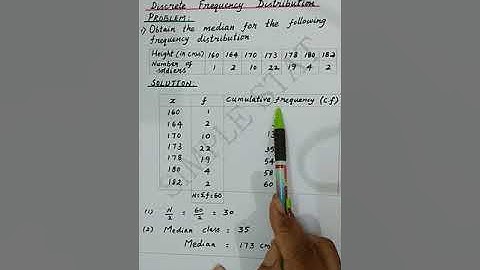 Discrete Frequency Distribution
PROBLEM:
1) Obtain the median for the following
frequency distribution
Height (in cms) 160 164 170 173 178 180 182
Number of soldiers 1 2 10 22 19 4 2
SOLUTION:
x f Cumulative frequency (c.f)
160 1
164 2
170 10 13
173 22 35
178 19 54
180 4 58
182 2 60
N=Σf=60
(1) N/2 = 60/2 = 30
(2) Median class = 35
Median = 173 cm
SIMPLE STAT